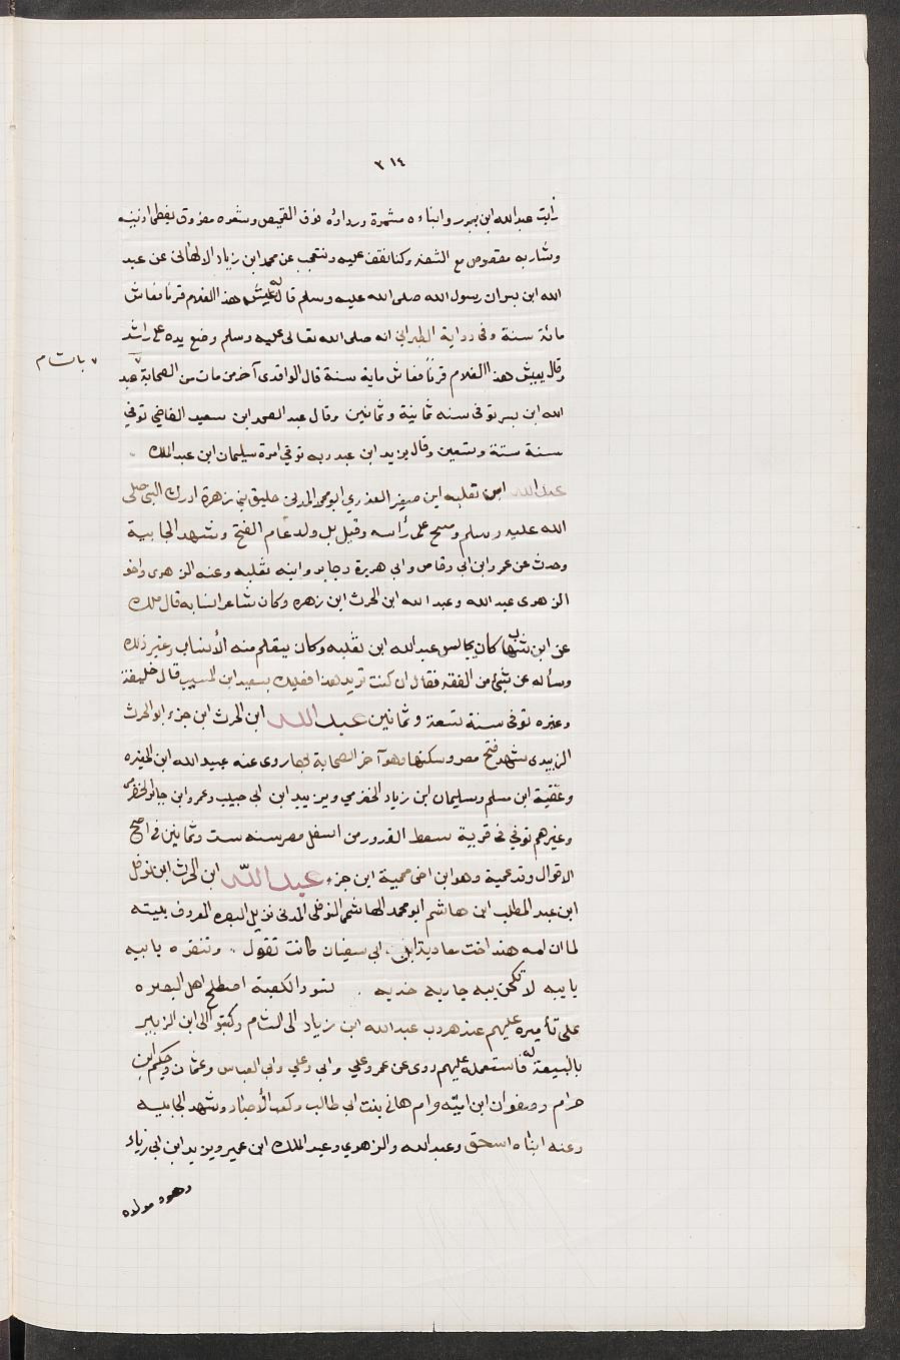 ٣١٤
رأيت عبدالله ابن بسر واثياءه مشمرة ورداؤه فوق القميص وشعره مفروق يغطي اذنيه
وشاربه مقصوص مع الشفة وكنا نقف عليه ونتعجب عن محمد ابن زياد الالهانى عن عبد
الله ابن بسر ان رسول الله صلى الله عليه وسلم قال له يعيش هذا الغلام قرنا فعاش
مائة سنة وفى رواية الطبراني انه صلى الله تعالى عليه وسلم وضع يده على راسه
وقال يعيش هذا الغلام قرنا فعاش ماية سنة قال الواقدى آخر من مات من الصحابة عبد
بالشام
الله ابن بسر توفى سنه ثمانية وثمانين وقال عبد الصمد ابن سعيد القاضي توفي
سنة ستة وتسعين وقال يزيد ابن عبد ربه توفي امرة سليمان ابن عبد الملك
عبد الله ابن ثعلبه ابن صغير العذري ابو محمد المدنى حليق بني زهرة ادرك النبي صلى
الله عليه وسلم ومسح على رأسه وقيل بل ولد عام الفتح وشهد الجابية
وحدث عن عمر وابن ابى وقاص وابي هريرة وجابر وابنه ثعلبه وعنه الزهرى واخو
الزهرى عبد الله وعبد الله ابن الحرث ابن زهره وكان شاعرا نسابه قال ملك
عن ابن شهاب كان يجالس عبد الله ابن ثعلبه وكان يتعلم منه الأنساب وغير ذلك
وسأله عن شئ من الفقه فقال ان كنت تريد هذا فعليك بسعيد ابن المسيب قال خليفة
وغيره توفى سنة تسعة وثمانين عبد الله ابن الحرث ابن جزء ابو الحرث
الزبيدى شهد فتح مصر وسكنها وهو آخر الصحابة بها روى عنه عبيد الله ابن المغيره
وعقبة ابن مسلم وسليمان ابن زياد الحضرمي ويزيد ابن ابي حبيب وعمرو ابن جابر الحضرمي
وغيرهم توفي فى قرية سفط القدور من اسفل مصر سنه ست وثمانين فى اصح
الاقوال وقد عمي وهو ابن اخى محمية ابن جزء عبد الله ابن الحرث ابن نوفل
ابن عبد المطلب ابن هاشم ابو محمد الهاشمى النوفلى المدنى نزيل البصره المعروف ببيته
لما ان امه هند اخت معاوية ابن ابى سفيان كانت تقول وتنقزه يا ببه
يا ببه لا نكحن ببه جاريه خدبه تسود الكعبة اصطلح اهل البصره
على تأميره عليهم عند هروب عبد الله ابن زياد الى الشام وكتبوا الى ابن الزبير
بالبيعة له فاستعمله عليهم روى عن عمر وعلي وابي وعلي وابى العباس وعثمان وحكيم ابن
حزام وصفوان ابن اميه وام هانى بنت ابى طالب وكعب الأحبار وشهد الجابيه
وعنه ابناه اسحق وعبد الله والزهري وعبد الملك ابن عمير ويزيد ابن ابى زياد
وهو مولاه